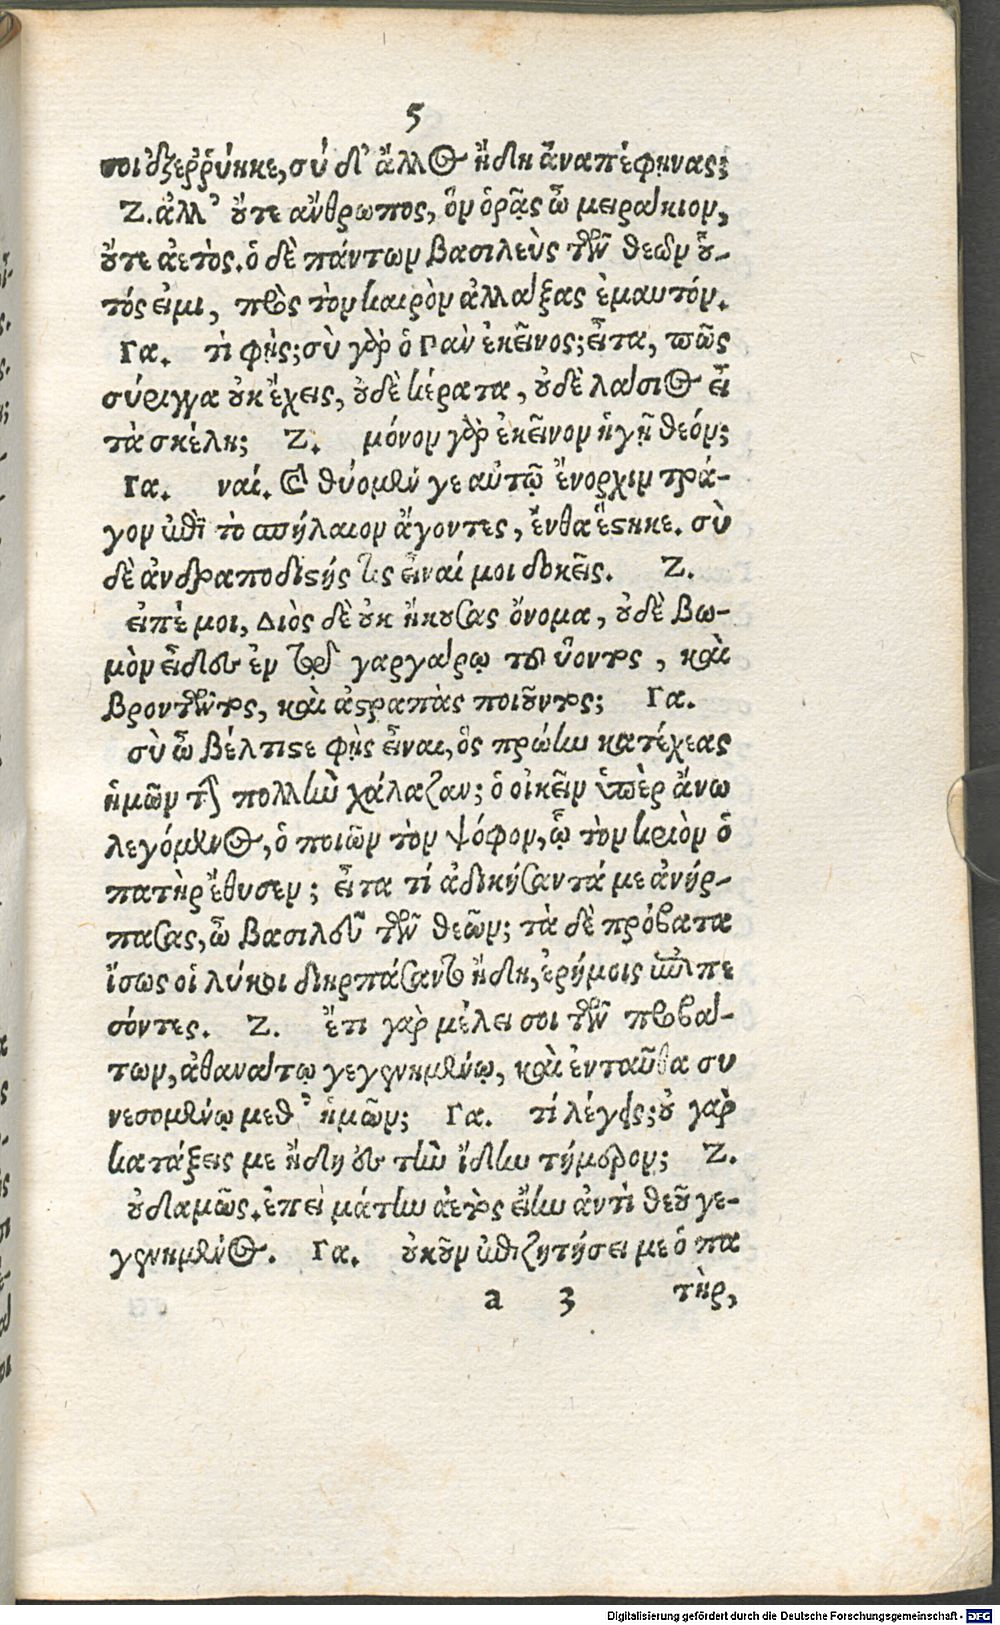 5
σοι ἐξεῤῥύηκε, σὺ δ' ἄλλος ἤδη ἀναπέφηνας;
Ζ. ἀλλ' οὔτε ἄνθρωπος, ὃν ὁρᾷς ὦ μειράκιον,
οὔτε ἀετὸς. ὁ δὲ πάντων βασιλεὺς τῶν θεῶν οὗ-
τός εἰμι, πρὸς τὸν καιρὸν ἀλλάξας ἐμαυτόν.
Γα. τί φῄς; σὺ γὰρ ὁ Πὰν ἐκεῖνος; εἶτα, πῶς
σύριγγα οὐκ ἔχεις, οὐδὲ κέρατα, οὐδὲ λάσιος εἶ
τὰ σκέλη; Ζ. μόνον γὰρ ἐκεῖνον ἡγῇ θεόν;
Γα. ναί. καὶ θύομέν γε αὐτῷ ἔνορχιν τρά-
γον ἐπὶ τὸ σπήλαιον ἄγοντες, ἔνθα ἕστηκε. σὺ
δὲ ἀνδραποδιστής τις εἶναί μοι δοκεῖς. Ζ.
εἰπέ μοι, Διὸς δὲ οὐκ ἤκουσας ὄνομα, οὐδὲ βω-
μὸν εἶδες ἐν τῷ γαργάρῳ τοῦ ὕοντος, καὶ
βροντῶντος, καὶ ἀστραπὰς ποιοῦντος; Γα.
σὺ ὦ βέλτιστε φῂς εἶναι, ὃς πρώην κατέχεας
ἡμῶν τὴν πολλὴν χάλαζαν; ὁ οἰκεῖν ὑπὲρ ἄνω
λεγόμενος, ὁ ποιῶν τὸν ψόφον, ᾧ τὸν κριὸν ὁ
πατὴρ ἔθυσεν; εἶτα τί ἀδικήσαντά με ἀνήρ-
πασας, ὦ βασιλεῦ τῶν θεῶν; τὰ δὲ πρόβατα
ἴσως οἱ λύκοι διηρπάσαντο ἤδη, ἐρήμοις ἐπιπε
σόντες. Ζ. ἔτι γὰρ μέλει σοι τῶν προβά-
των, ἀθανάτῳ γεγενημένῳ, καὶ ἐνταῦθα συ
νεσομένῳ μεθ' ἡμῶν; Γα. τί λέγεις; οὐ γὰρ
κατάξεις με ἤδη ἐς τὴν ἴδην τήμερον; Ζ.
οὐδαμῶς. ἐπεὶ μάτην ἀετὸς εἴην ἀντὶ θεοῦ γε-
γενημένος. Γα. οὐκοῦν ἐπιζητήσει με ὁ πα
a 3 τὴρ,
Digitalisierung gefördert durch die Deutsche Forschungsgemeinschaft - DFG